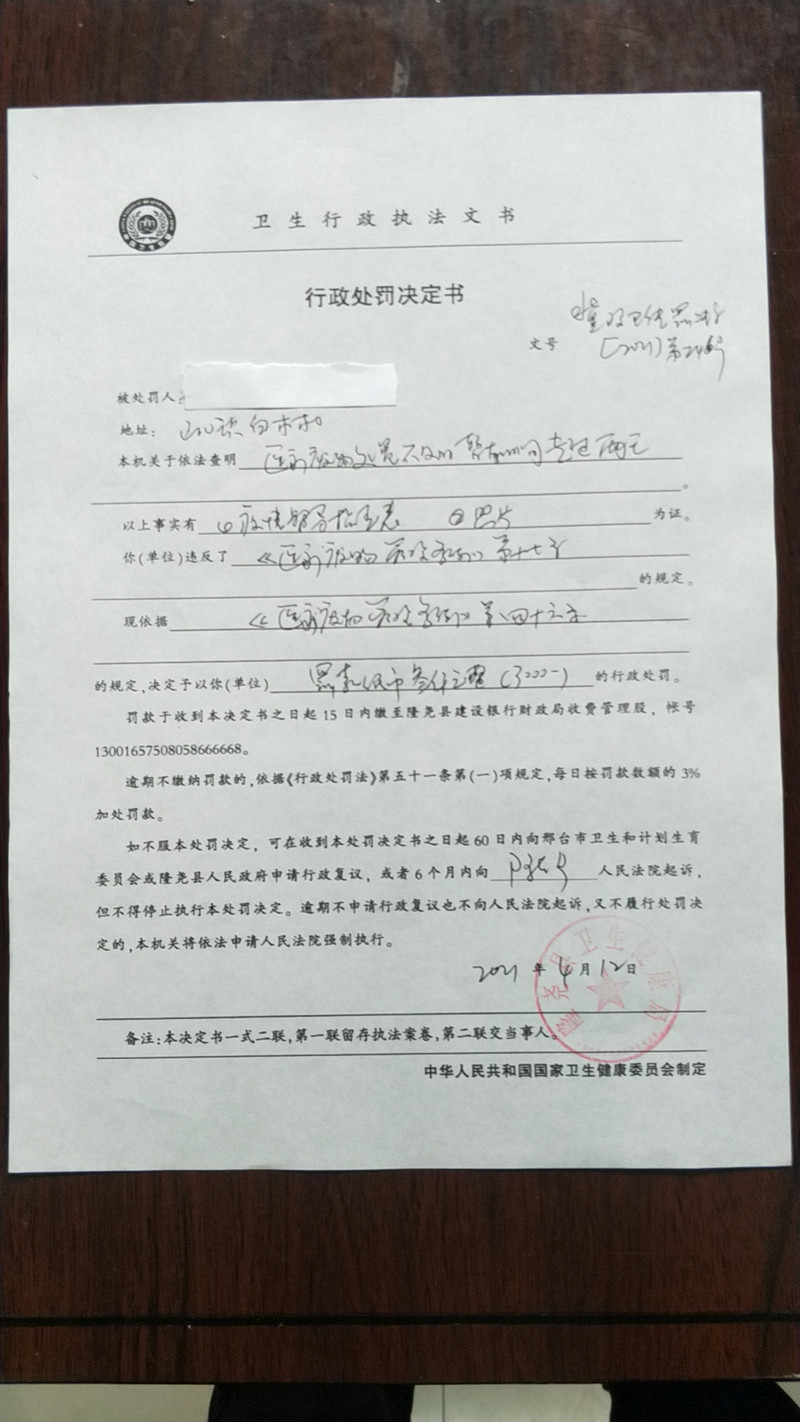 卫生行政执法文书
行政处罚决定书
文号
(2021)第246号
被处罚人:
地址:
本机关于依法查明 医疗废物处置不及时 暂存时间超过两天
。
以上事实有 ② 照片 为证。
你(单位)违反了 《医疗废物管理条例》第十七条
的规定。
现依据 《医疗废物管理条例》第四十六条
的规定,决定予以你(单位) 罚款人民币叁仟元整(3000-) 的行政处罚。
罚款于收到本决定书之日起15日内缴至隆尧县建设银行财政局收费管理股,帐号
13001657508058666668。
逾期不缴纳罚款的,依据《行政处罚法》第五十一条第(一)项规定,每日按罚款数额的3%
加处罚款。
如不服本处罚决定,可在收到本处罚决定书之日起60日内向邢台市卫生和计划生育
委员会或隆尧县人民政府申请行政复议,或者6个月内向 人民法院起诉,
但不得停止执行本处罚决定。逾期不申请行政复议也不向人民法院起诉,又不履行处罚决
定的,本机关将依法申请人民法院强制执行。
2021年4月12日
隆尧县卫生健康局
备注:本决定书一式二联,第一联留存执法案卷,第二联交当事人。
中华人民共和国国家卫生健康委员会制定